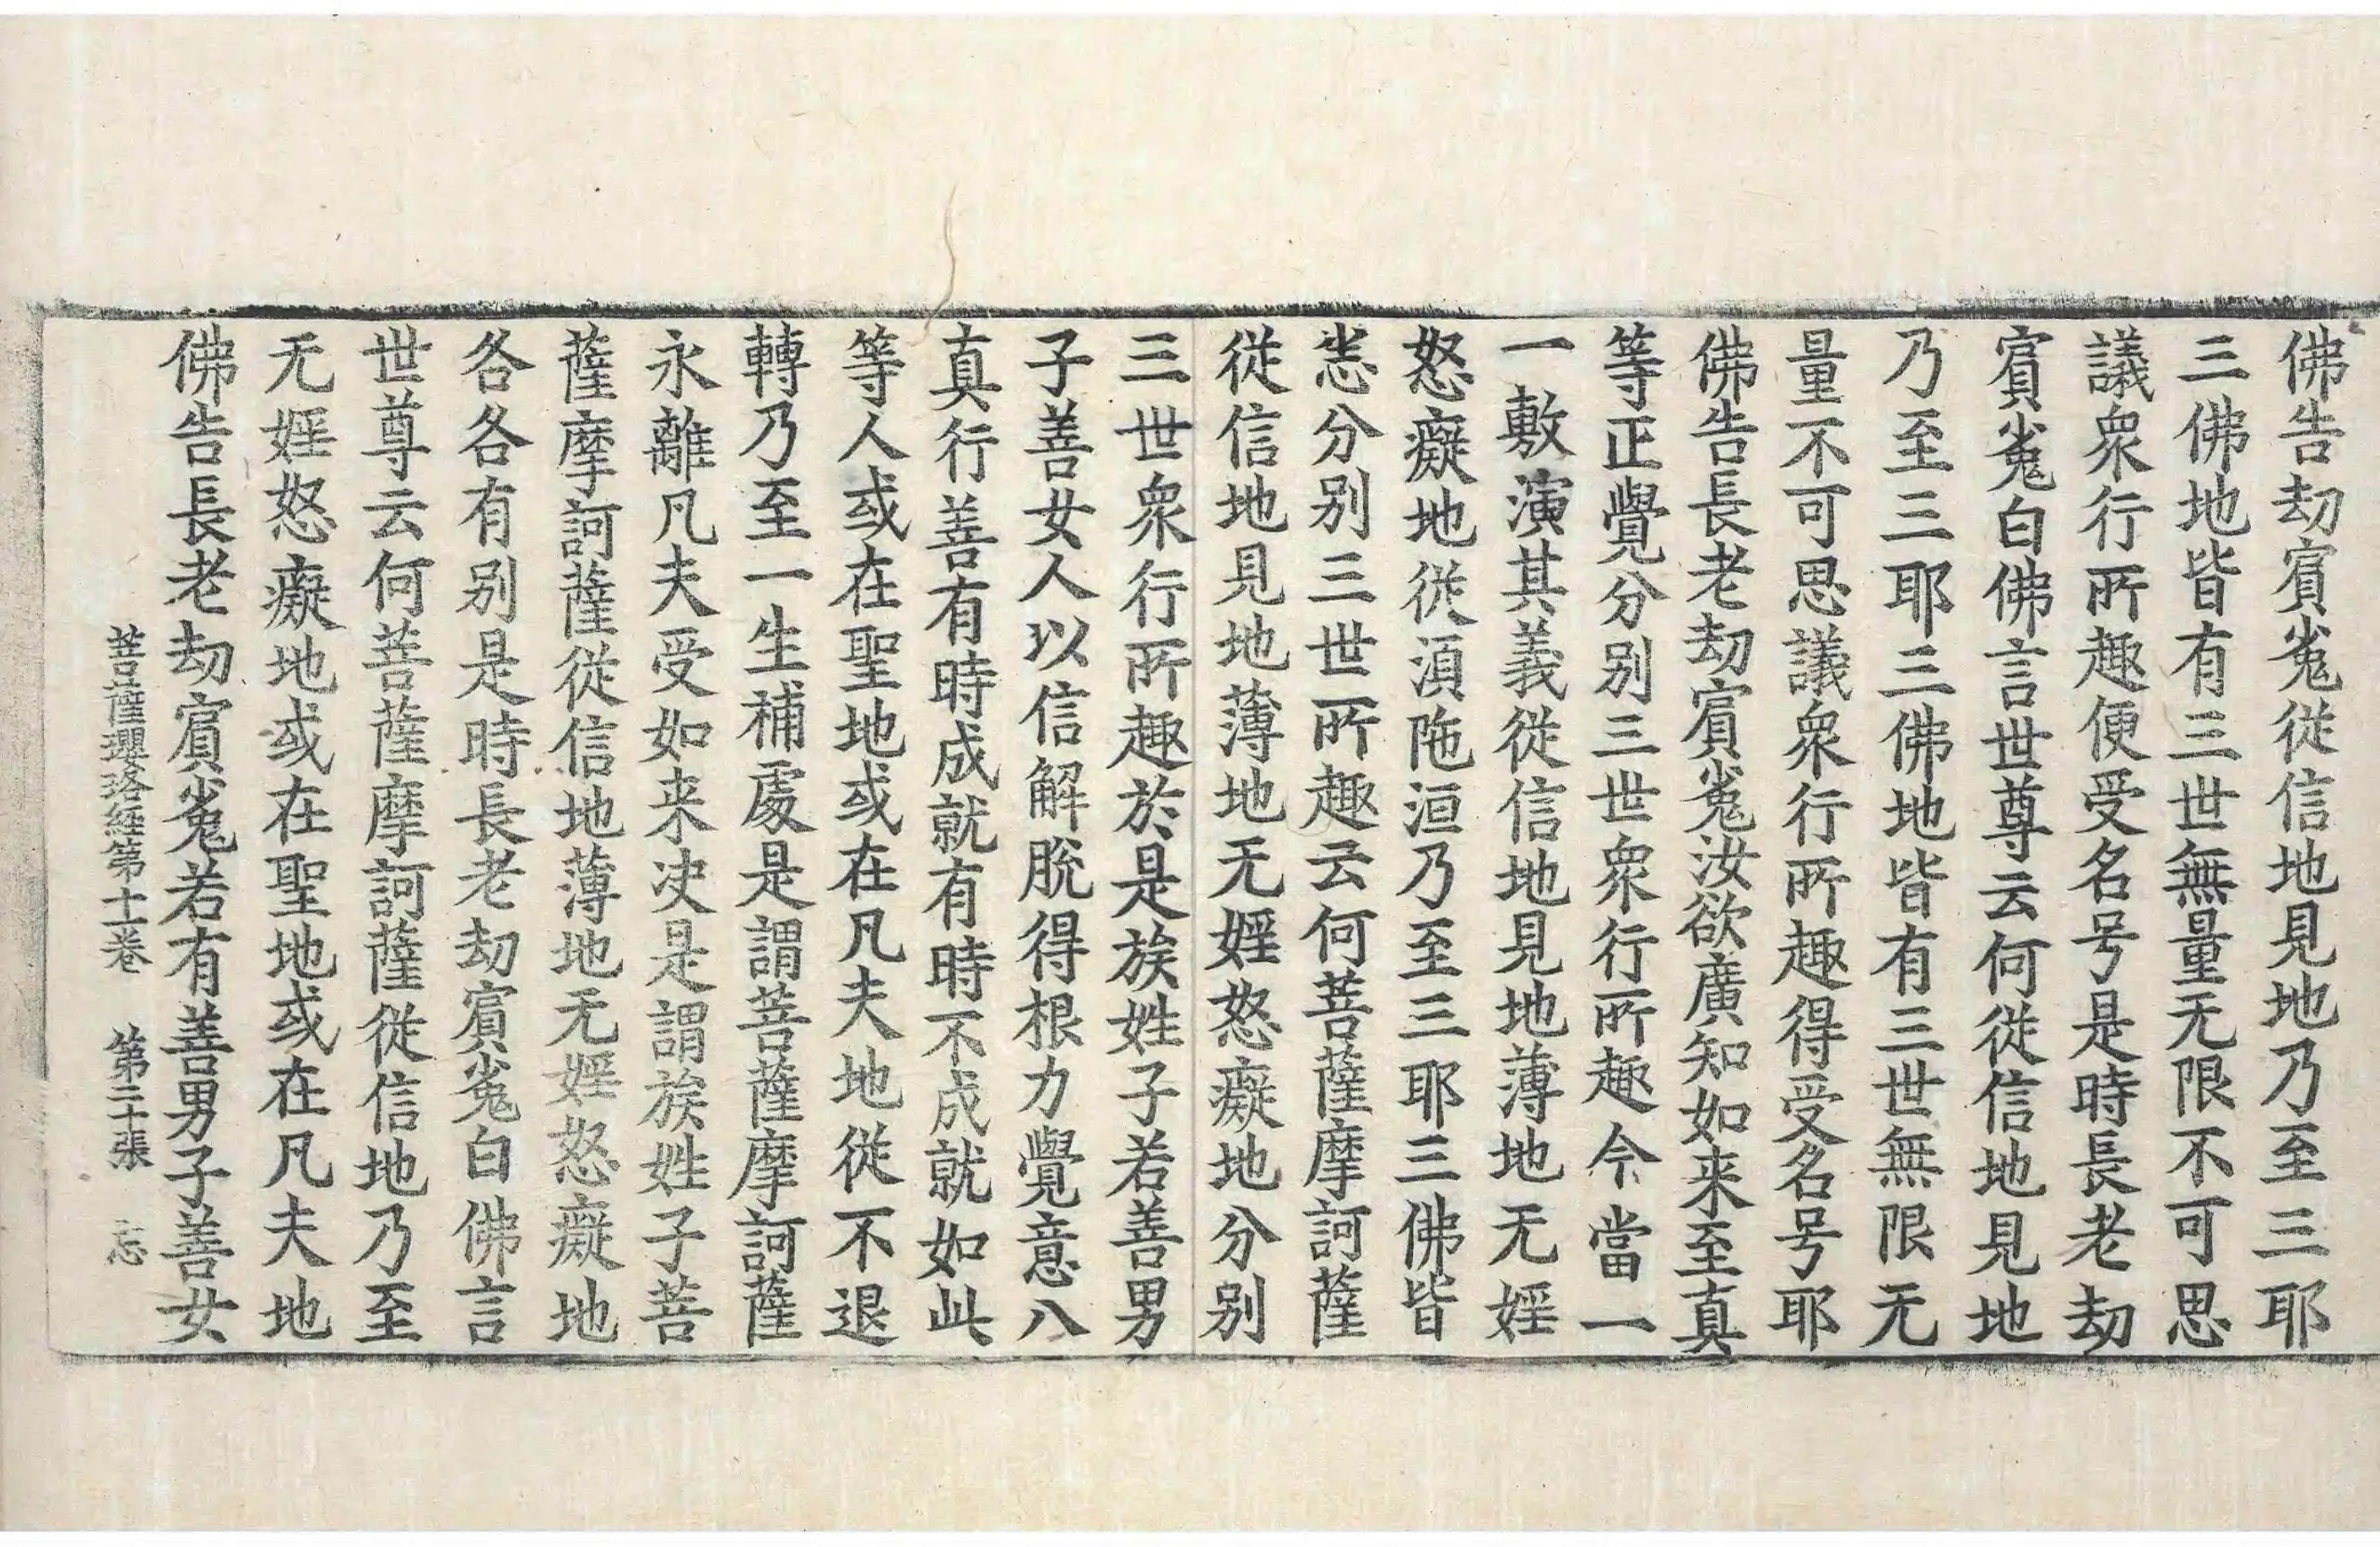 佛告劫賔㝹從信地見地乃至三耶
三佛地皆有三世無量无限不可思
議衆行所趣便受名号是時長老劫
賔㝹白佛言世尊云何從信地見地
乃至三耶三佛地皆有三世無限无
量不可思議衆行所趣得受名号耶
佛告長老劫賔㝹汝欲廣知如来至真
等正覺分别三世衆行所趣今當一
一敷演其義從信地見地薄地无婬
怒癡地從湏陁洹乃至三耶三佛皆
悉分别三世所趣云何菩薩摩訶薩
從信地見地薄地无婬怒癡地分别
三世衆行所趣於是族姓子若善男
子善女人以信解脫得根力覺意八
真行善有時成就有時不成就如此
等人或在聖地或在凡夫地從不退
轉乃至一生補處是謂菩薩摩訶薩
永離凡夫受如来决是謂族姓子菩
薩摩訶薩從信地薄地无婬怒癡地
各各有别是時長老劫賔㝹白佛言
世尊云何菩薩摩訶薩從信地乃至
无婬怒癡地或在聖地或在凡夫地
佛告長老劫賔㝹若有善男子善女
菩薩瓔珞經第十一卷 第二十張 忘